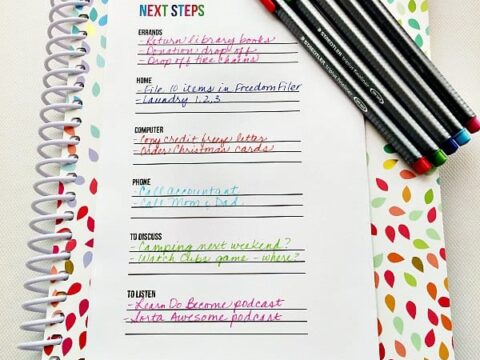 NEXT STEPS
ERRANDS
- Return library books
- Donation drop off
- Drop off tire chains
HOME
- File 10 items in Freedom Filer
- Laundry 1, 2, 3
COMPUTER
- Copy credit freeze letter
- Order Christmas cards
PHONE
- Call accountant
- Call Mom & Dad
TO DISCUSS
- Camping next weekend?
- Watch Cubs game - where?
TO LISTEN
- Learn Do Become podcast
- Sorta Awesome podcast
STAEDTLER triplus fineliner
STAEDTLER triplus fineliner